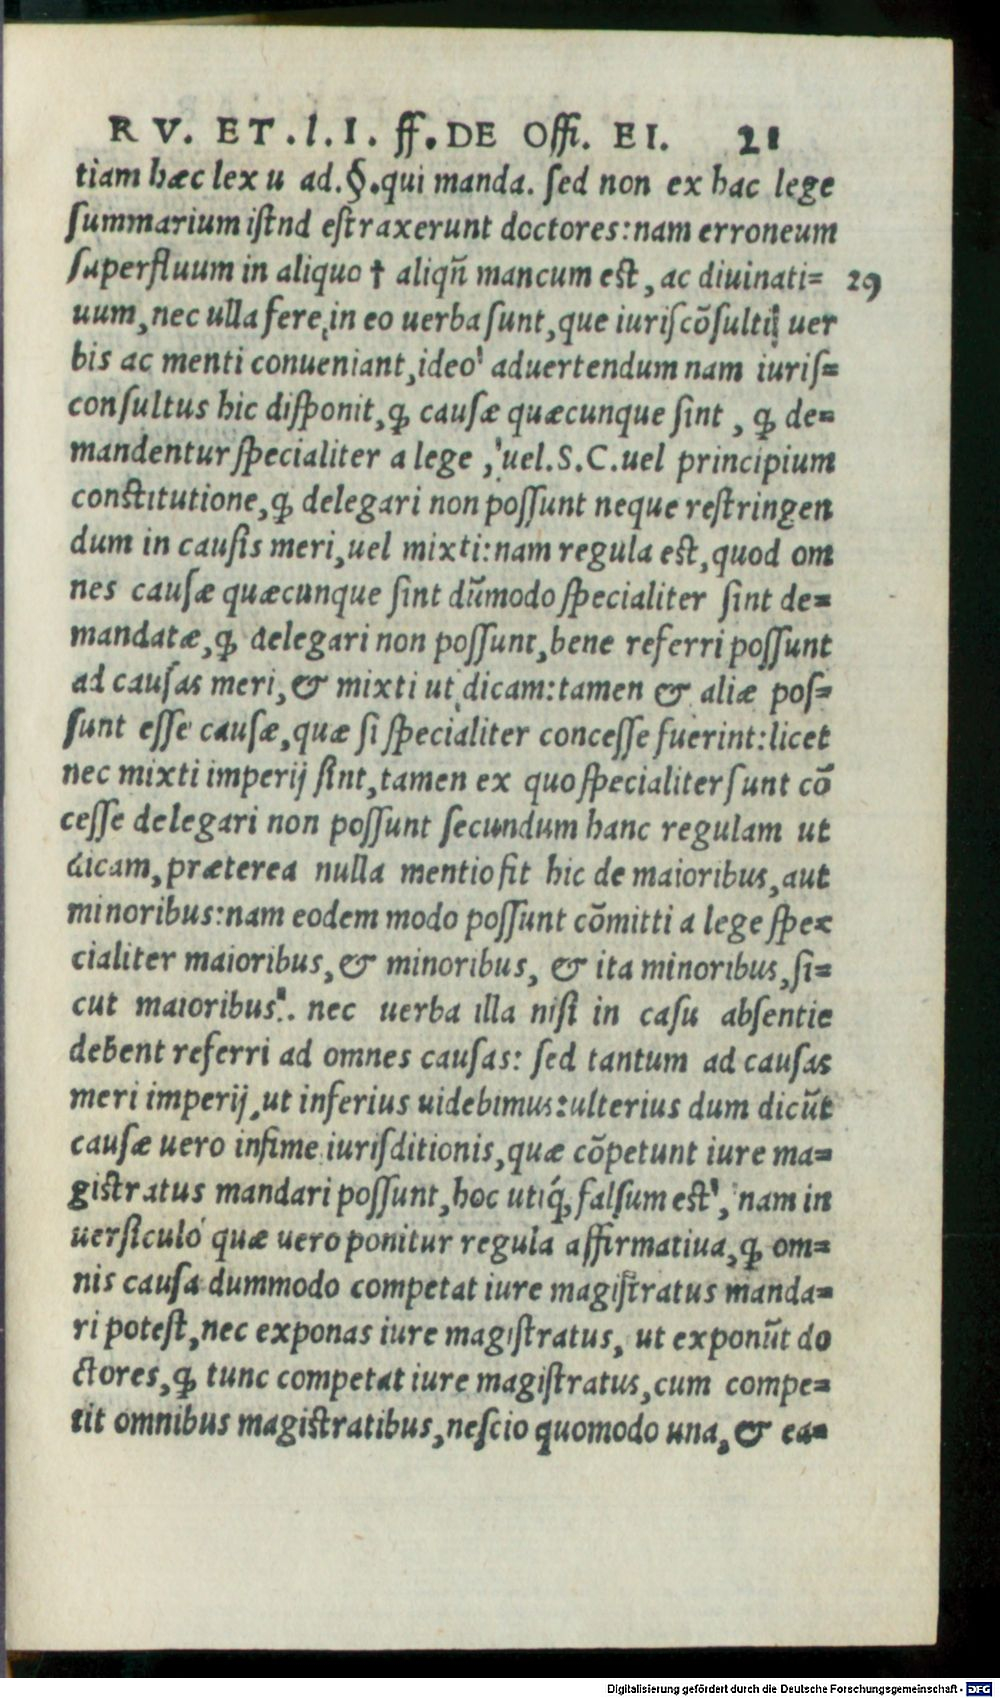 RV. ET .l.I. ff. DE Offi. EI. 21
tiam hæc lex u ad.§.qui manda. sed non ex hac lege
summarium istnd estraxerunt doctores:nam erroneum
superfluum in aliquo † aliqñ mancum est, ac diuinati= 29
uum, nec ulla fere in eo uerba sunt, que iuriscõsulti uer
bis ac menti conueniant, ideo aduertendum nam iuris=
consultus hic disponit, ꝙ causæ quæcunque sint , ꝙ de=
mandentur specialiter a lege , uel.S.C.uel principium
constitutione, ꝙ delegari non possunt neque restringen
dum in causis meri, uel mixti:nam regula est, quod om
nes causæ quæcunque sint dũmodo specialiter sint de=
mandatæ, ꝙ delegari non possunt, bene referri possunt
ad causas meri, & mixti ut dicam:tamen & aliæ pos=
sunt esse causæ, quæ si specialiter concesse fuerint:licet
nec mixti imperij sint, tamen ex quo specialiter sunt cõ
cesse delegari non possunt secundum hanc regulam ut
dicam, præterea nulla mentio fit hic de maioribus, aut
minoribus:nam eodem modo possunt cõmitti a lege spe=
cialiter maioribus, & minoribus, & ita minoribus, si=
cut maioribus. nec uerba illa nisi in casu absentie
debent referri ad omnes causas: sed tantum ad causas
meri imperij, ut inferius uidebimus:ulterius dum dicũt
causæ uero infime iurisditionis, quæ cõpetunt iure ma=
gistratus mandari possunt, hoc utiq́; falsum est, nam in
uersiculo quæ uero ponitur regula affirmatiua, ꝙ om=
nis causa dummodo competat iure magistratus manda=
ri potest, nec exponas iure magistratus, ut exponũt do
ctores, ꝙ tunc competat iure magistratus, cum compe=
tit omnibus magistratibus, nescio quomodo una, & ea=
Digitalisierung gefördert durch die Deutsche Forschungsgemeinschaft - DFG